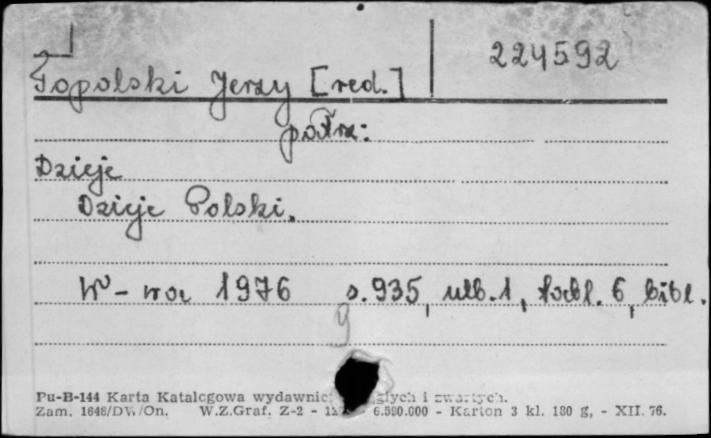 224592
Topolski Jerzy [red.]
patrz:
Dzieje
Dzieje Polski.
W-wa 1976 s.935, nlb.1, tabl. 6, bibl.
g
Pu-B-144 Karta Katalogowa wydawnic i zwartych.
Zam. 1648/DW/On. W.Z.Graf. Z-2 - 6.590.000 - Karton 3 kl. 180 g, - XII. 76.